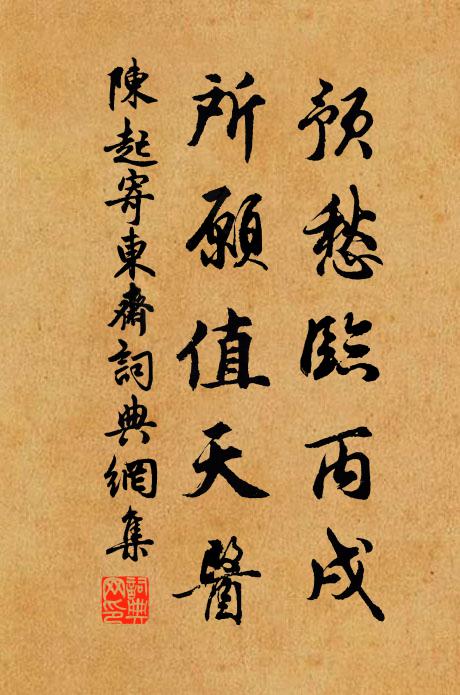 預愁臨丙戌
所願值天醫
陳起寄東齋詞典網集
詞典網印